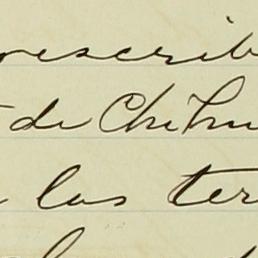 rescrib
de Chihu
las ter